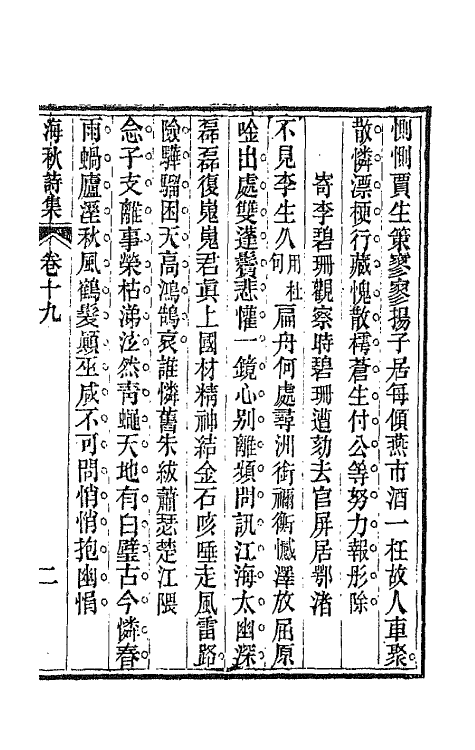 惻惻賈生策寥寥揚子居每傾燕市酒一枉故人車聚
散憐漂梗行藏愧散樗蒼生付公等努力報彤除
寄李碧珊觀察時碧珊遭劾去官屏居鄂渚
不見李生久用杜句扁舟何處尋洲銜禰衡憾澤放屈原
唫出處雙蓬鬢悲懽一鏡心别離頻問訊江海太幽深
磊磊復嵬嵬君眞上國材精神結金石咳唾走風雷路
險驊騮困天高鴻鵠哀誰憐舊朱紱蕭瑟楚江隈
念子支離事榮枯涕泫然靑蠅天地有白璧古今憐春
雨蝸廬溼秋風鶴髪顚巫咸不可問悄悄抱幽悁
海秋詩集 卷十九 二